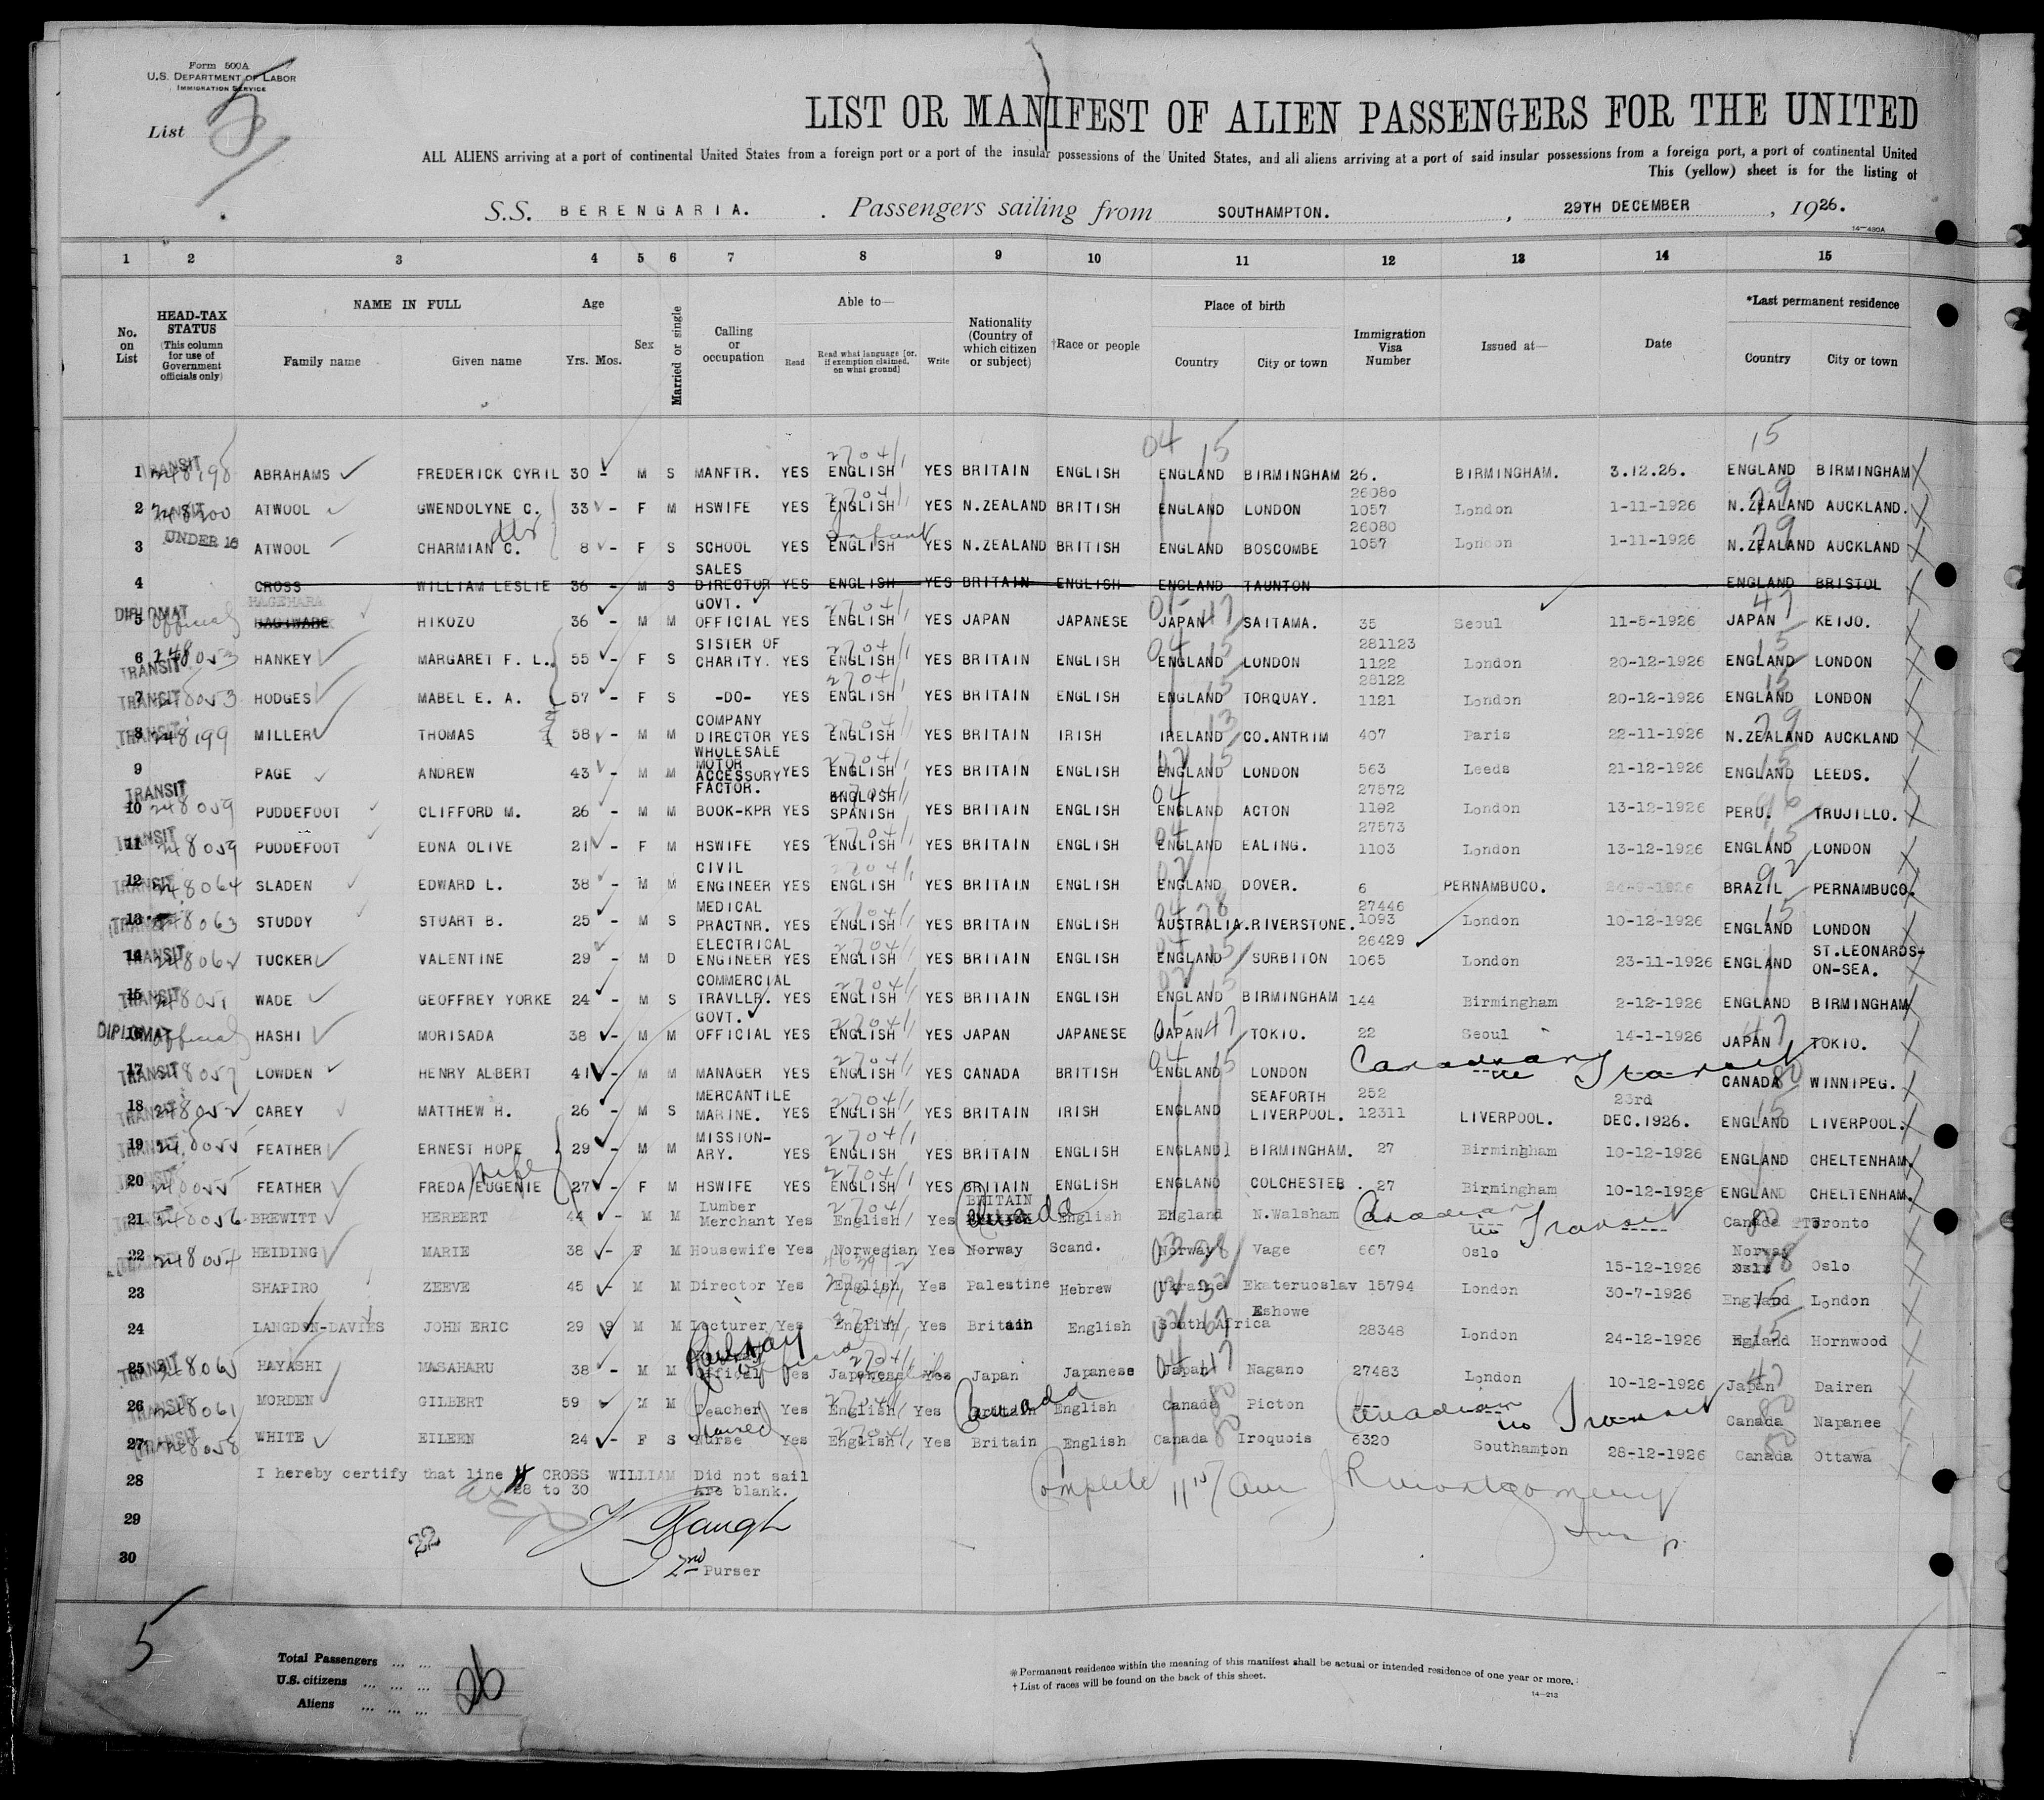 Form 500A
U.S. DEPARTMENT OF LABOR
IMMIGRATION SERVICE
List 5
LIST OR MANIFEST OF ALIEN PASSENGERS FOR THE UNITED
ALL ALIENS arriving at a port of continental United States from a foreign port or a port of the insular possessions of the United States, and all aliens arriving at a port of said insular possessions from a foreign port, a port of continental United
This (yellow) sheet is for the listing of
S.S. BERENGARIA. Passengers sailing from SOUTHAMPTON. , 29TH DECEMBER , 1926.
14-430A
1 2 3 4 5 6 7 8 9 10 11 12 13 14 15
No. on List HEAD-TAX STATUS (This column for use of Government officials only) NAME IN FULL Family name Given name Age Yrs. Mos. Sex Married or single Calling or occupation Able to— Read Read what language [or, if exemption claimed, on what ground] Write Nationality (Country of which citizen or subject) †Race or people Place of birth Country City or town Immigration Visa Number Issued at— Date *Last permanent residence Country City or town
1 TRANSIT 248198 ABRAHAMS FREDERICK CYRIL 30 - M S MANFTR. YES ENGLISH YES BRITAIN ENGLISH ENGLAND BIRMINGHAM 26. BIRMINGHAM. 3.12.26. ENGLAND BIRMINGHAM
2 248200 ATWOOL GWENDOLYNE C. 33 - F M HSWIFE YES ENGLISH YES N.ZEALAND BRITISH ENGLAND LONDON 26080 1057 London 1-11-1926 N.ZEALAND AUCKLAND.
3 UNDER 16 ATWOOL CHARMIAN C. 8 - F S SCHOOL YES ENGLISH YES N.ZEALAND BRITISH ENGLAND BOSCOMBE 26080 1057 London 1-11-1926 N.ZEALAND AUCKLAND
4 CROSS WILLIAM LESLIE 36 - M S SALES DIRECTOR YES ENGLISH YES BRITAIN ENGLISH ENGLAND TAUNTON ENGLAND BRISTOL
5 DIPLOMAT Official HAGEHARA HIKOZO 36 - M M GOVT. OFFICIAL YES ENGLISH YES JAPAN JAPANESE JAPAN SAITAMA. 35 Seoul 11-5-1926 JAPAN KEIJO.
6 TRANSIT 248053 HANKEY MARGARET F. L. 55 - F S SISTER OF CHARITY. YES ENGLISH YES BRITAIN ENGLISH ENGLAND LONDON 281123 1122 London 20-12-1926 ENGLAND LONDON
7 TRANSIT 248053 HODGES MABEL E. A. 57 - F S -DO- YES ENGLISH YES BRITAIN ENGLISH ENGLAND TORQUAY. 28122 1121 London 20-12-1926 ENGLAND LONDON
8 TRANSIT 248199 MILLER THOMAS 58 - M M COMPANY DIRECTOR YES ENGLISH YES BRITAIN IRISH IRELAND CO.ANTRIM 407 Paris 22-11-1926 N.ZEALAND AUCKLAND
9 PAGE ANDREW 43 - M M WHOLESALE MOTOR ACCESSORY FACTOR. YES ENGLISH YES BRITAIN ENGLISH ENGLAND LONDON 563 Leeds 21-12-1926 ENGLAND LEEDS.
10 TRANSIT 248059 PUDDEFOOT CLIFFORD M. 26 - M M BOOK-KPR YES ENGLISH SPANISH YES BRITAIN ENGLISH ENGLAND ACTON 27572 1102 London 13-12-1926 PERU. TRUJILLO.
11 TRANSIT 248059 PUDDEFOOT EDNA OLIVE 21 - F M HSWIFE YES ENGLISH YES BRITAIN ENGLISH ENGLAND EALING. 27573 1103 London 13-12-1926 ENGLAND LONDON
12 TRANSIT 248064 SLADEN EDWARD L. 38 - M M CIVIL ENGINEER YES ENGLISH YES BRITAIN ENGLISH ENGLAND DOVER. 6 PERNAMBUCO. 24-9-1926 BRAZIL PERNAMBUCO.
13 TRANSIT 248063 STUDDY STUART B. 25 - M S MEDICAL PRACTNR. YES ENGLISH YES BRITAIN ENGLISH AUSTRALIA. RIVERSTONE. 27446 1093 London 10-12-1926 ENGLAND LONDON
14 TRANSIT 248062 TUCKER VALENTINE 29 - M D ELECTRICAL ENGINEER YES ENGLISH YES BRITAIN ENGLISH ENGLAND SURBITON 26429 1065 London 23-11-1926 ENGLAND ST.LEONARDS-ON-SEA.
15 TRANSIT 248051 WADE GEOFFREY YORKE 24 - M S COMMERCIAL TRAVLLR. YES ENGLISH YES BRITAIN ENGLISH ENGLAND BIRMINGHAM 144 Birmingham 2-12-1926 ENGLAND BIRMINGHAM
16 DIPLOMAT Official HASHI MORISADA 38 - M M GOVT. OFFICIAL YES ENGLISH YES JAPAN JAPANESE JAPAN TOKIO. 22 Seoul 14-1-1926 JAPAN TOKIO.
17 TRANSIT 248057 LOWDEN HENRY ALBERT 41 - M M MANAGER YES ENGLISH YES CANADA BRITISH ENGLAND LONDON Canadian in Transit CANADA WINNIPEG.
18 TRANSIT 248052 CAREY MATTHEW H. 26 - M S MERCANTILE MARINE. YES ENGLISH YES BRITAIN IRISH ENGLAND SEAFORTH LIVERPOOL. 252 12311 LIVERPOOL. 23rd DEC.1926. ENGLAND LIVERPOOL.
19 TRANSIT 248055 FEATHER ERNEST HOPE 29 - M M MISSION-ARY. YES ENGLISH YES BRITAIN ENGLISH ENGLAND BIRMINGHAM. 27 Birmingham 10-12-1926 ENGLAND CHELTENHAM.
20 TRANSIT 248055 FEATHER FREDA EUGENIE Wife 27 - F M HSWIFE YES ENGLISH YES BRITAIN ENGLISH ENGLAND COLCHESTER . 27 Birmingham 10-12-1926 ENGLAND CHELTENHAM.
21 TRANSIT 248056 BREWITT HERBERT 44 - M M Lumber Merchant Yes English Yes BRITAIN Canada English England N.Walsham Canadian in Transit Canada Toronto
22 248054 HEIDING MARIE 38 - F M Housewife Yes Norwegian Yes Norway Scand. Norway Vage 667 Oslo 15-12-1926 Norway Oslo
23 SHAPIRO ZEEVE 45 - M M Director Yes English Yes Palestine Hebrew Ukraine Ekateruoslav 15794 London 30-7-1926 England London
24 LANGDON-DAVIES JOHN ERIC 29 9 M M Lecturer Yes English Yes Britain English South Africa Eshowe 28348 London 24-12-1926 Egland Hornwood
25 TRANSIT 248065 HAYASHI MASAHARU 38 - M M Railway Official Yes Japenese Yes Japan Japanese Japan Nagano 27483 London 10-12-1926 Japan Dairen
26 TRANSIT 248061 MORDEN GILBERT 59 M M Teacher Yes English Yes Britain Canada English Canada Picton Canadian in Transit Canada Napanee
27 TRANSIT 248058 WHITE EILEEN 24 - F S Trained Nurse Yes English Yes Britain English Canada Iroquois 6320 Southamton 28-12-1926 Canada Ottawa
28 I hereby certify that line 4 CROSS WILLIAM Did not sail
28 to 30 Are blank.
Complete 11 15/ am R Montgomery
Insp.
29
22
30
2nd Purser
5
Total Passengers ... ...
U.S. citizens ... ... ...
Aliens ... ... ...
26
* Permanent residence within the meaning of this manifest shall be actual or intended residence of one year or more.
† List of races will be found on the back of this sheet.
14-213